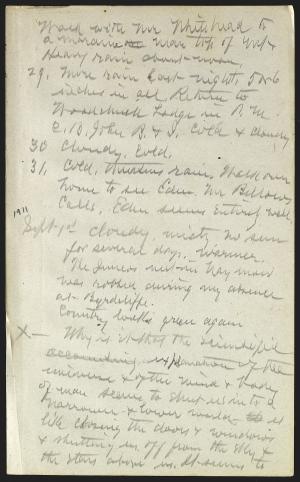 Walk with Mr Whitehead to
a moraine near top of Mt &
Heavy rain about noon.
29. More rain last night, 5 or 6
inches in all. Return to
Woodchuck Lodge in P.M.
C. B, John B. & I. Cold & cloudy
30 Cloudy, cold.
31, Cold, rain, Walk over
home to see Eden. Mr Bellows
Calls. Eden seems entirely well
1911
Sept. 1st cloudy, misty no sun
for several days. Warmer.
The Junco's nest in haymow
was robbed during my absence
at Byrdcliffe.
Country looks green again
X— Why is it that the scientific
accounting, explanation of the
universe & of the mind & body
of man seems to shut us into a
narrower & lower world is
like closing the doors & windows
& shutting us off from the sky &
the stars above us. It seems to